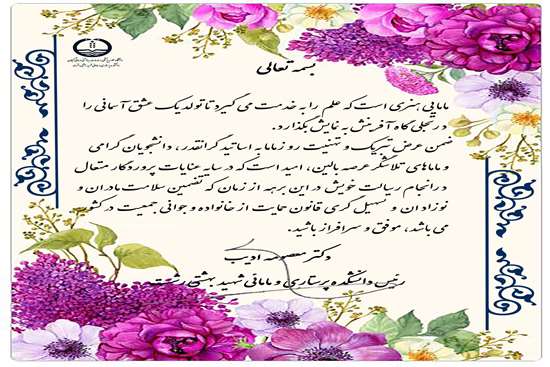 بسمه تعالی
مامایی هنری است که علم را به خدمت می گیرد تا تولد یک عشق آسمانی را
در تجلی گاه آفرینش به نمایش بگذارد.
ضمن عرض تبریک و تهنیت روز ماما به اساتید گرانقدر، دانشجویان گرامی
و ماماهای تلاشگر عرصه بالین، امید است که در سایه عنایات پروردگار متعال
در انجام رسالت خویش در این برهه از زمان که تضمین سلامت مادران و
نوزادان و تسهیل گری قانون حمایت از خانواده و جوانی جمعیت در کشور
می باشد، موفق و سرافراز باشید.
دکتر معصومه ادیب
رئیس دانشکده پرستاری و مامائی شهید بهشتی رشت